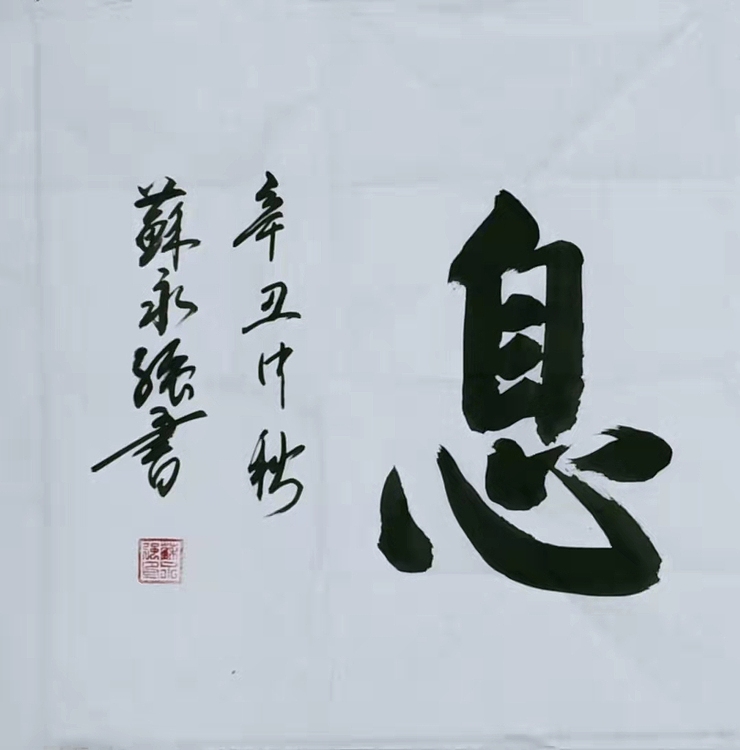 息
辛丑仲秋
蘇永强書